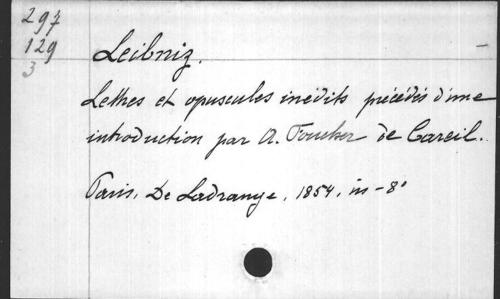 297
129
3
Leibniz.
Lettres et opuscules inédits précédés d'une
introduction par A. Foucher de Careil.
Paris, De Ladrange, 1854, in-8°